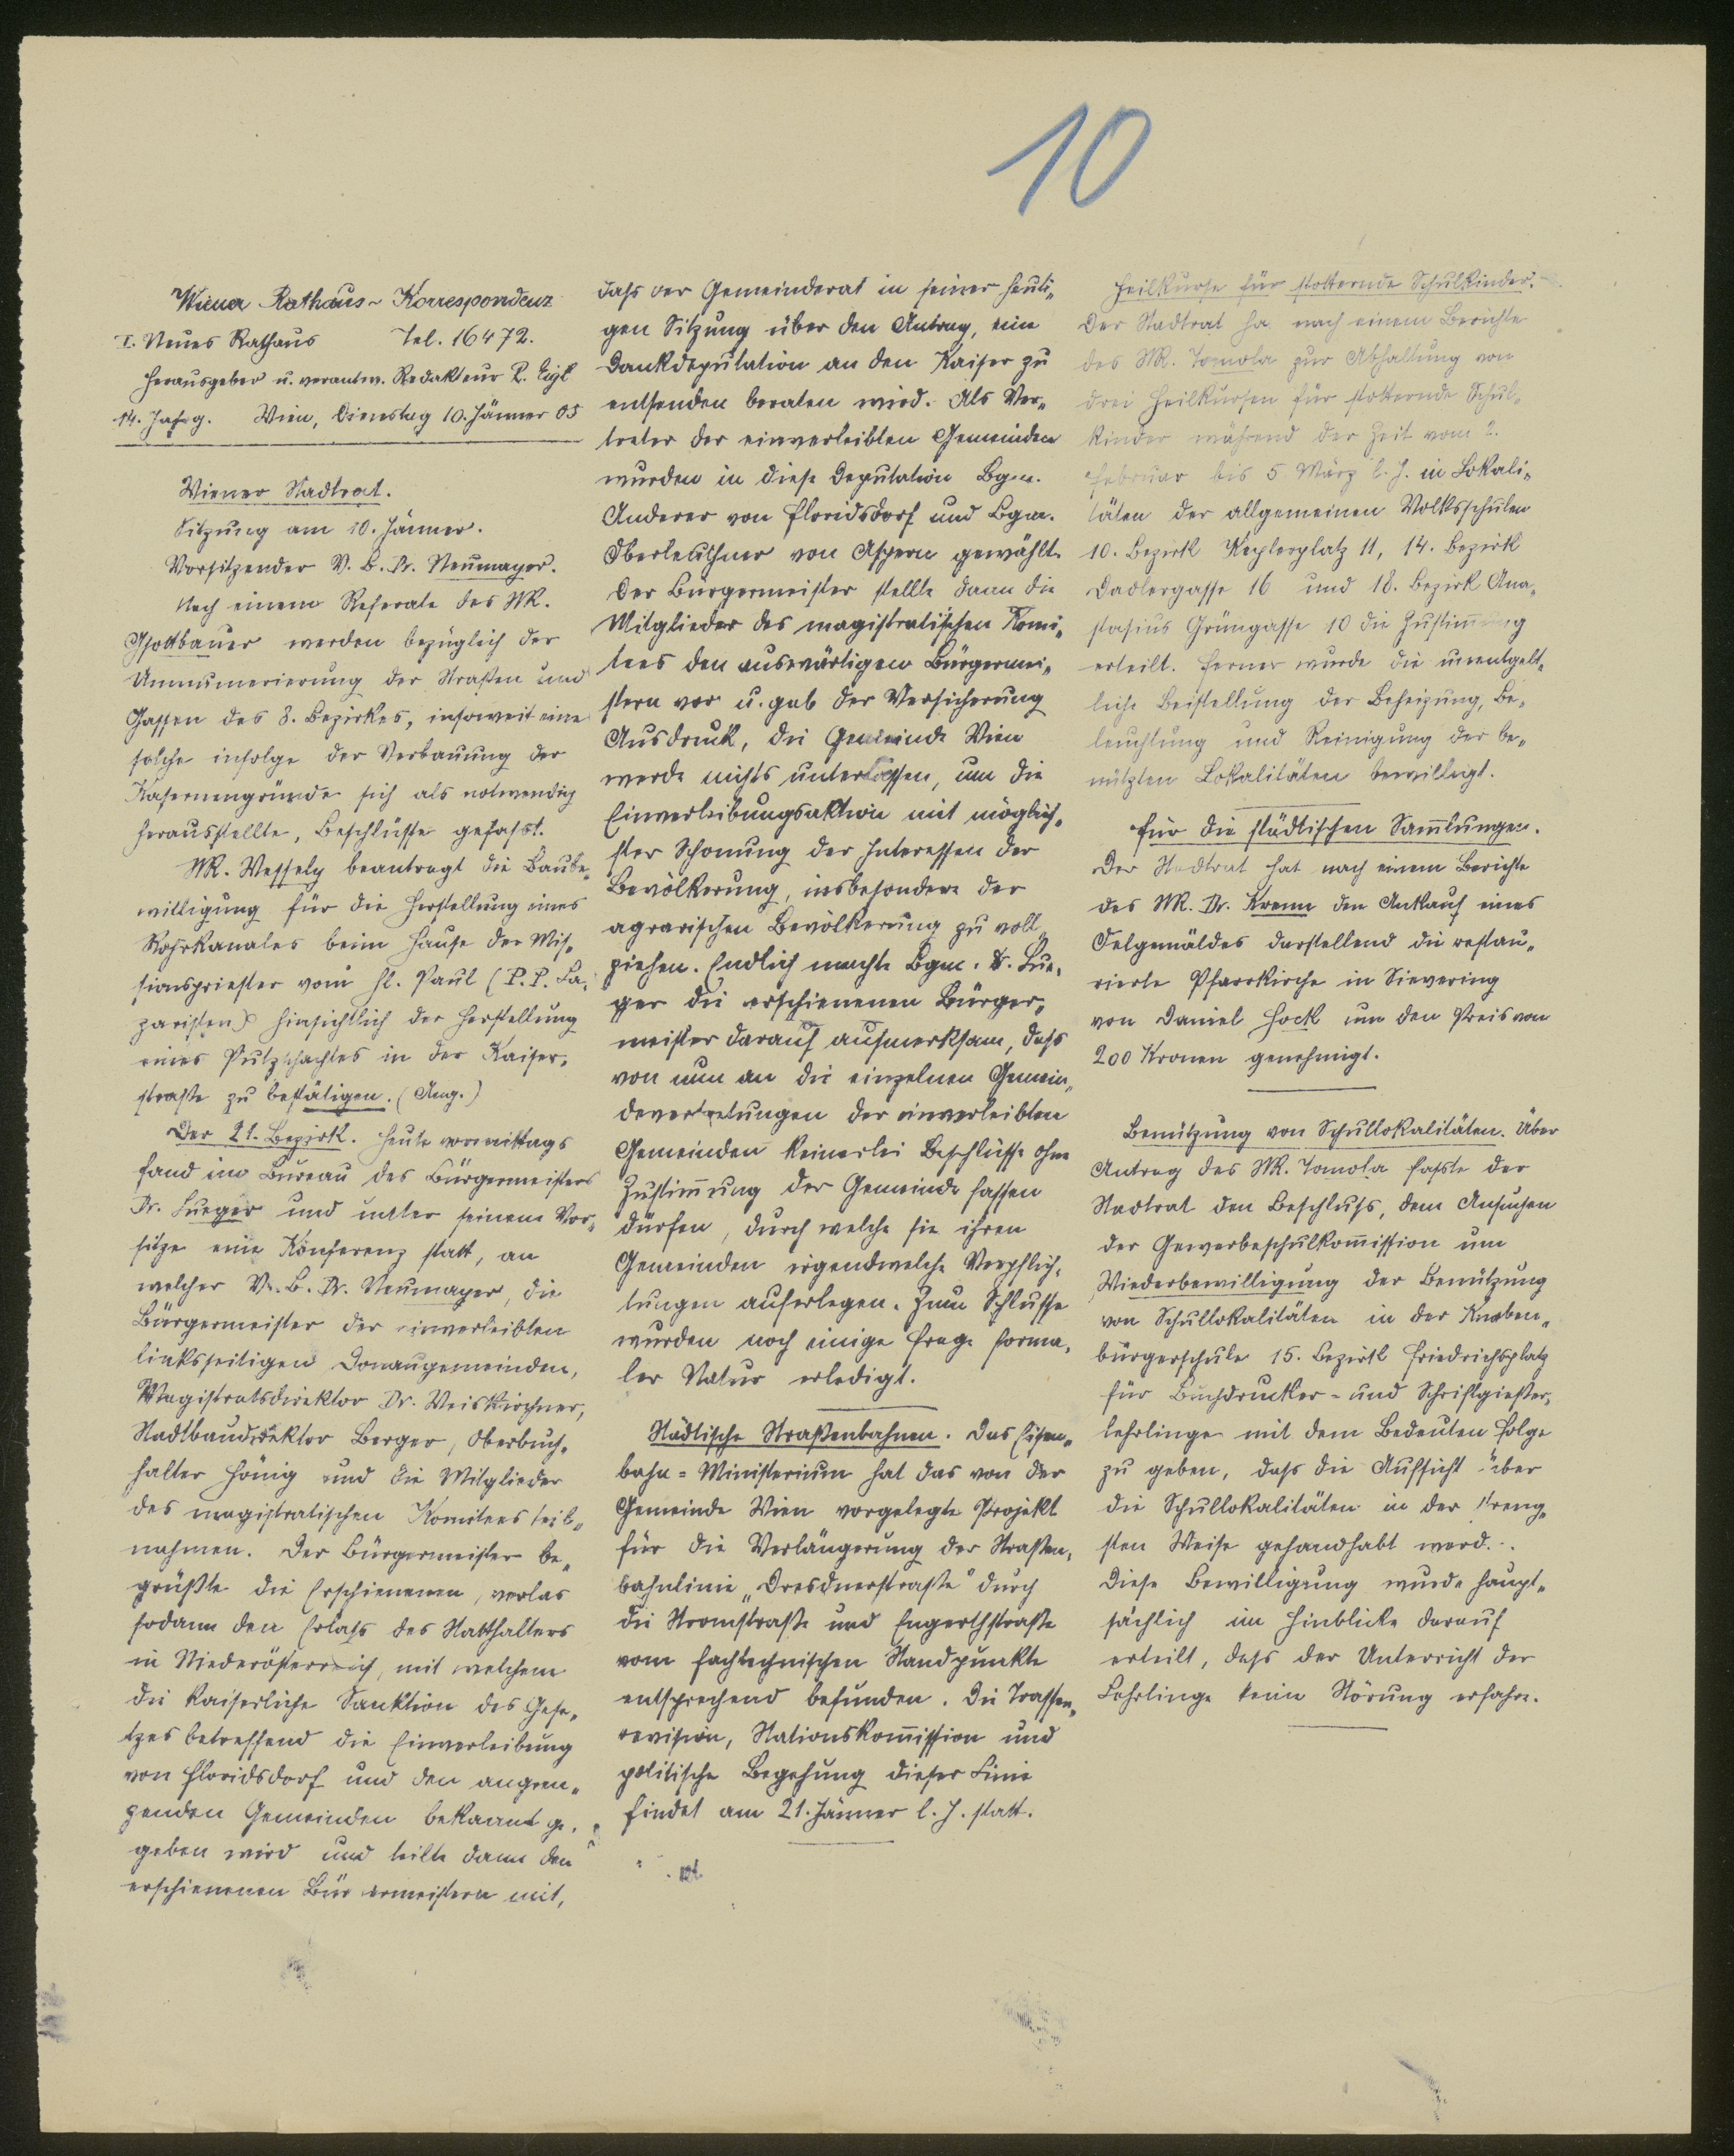 10
Wiener Rathaus-Korrespondenz
I. Neues Rathaus Tel. 16472.
Herausgeber u. verantw. Redakteur R. Eigl
14. Jahrg. Wien, Dienstag 10. Jänner 05
Wiener Stadtrat.
Sitzung am 10. Jänner.
Vorsitzender V. B. Dr. Neumayer.
Nach einem Referate des StR.
Gsottbauer werden bezüglich der
Umnumerierung der Straßen und
Gassen des 8. Bezirkes, insoweit eine
solche infolge der Verbauung der
Kasernengründe sich als notwendig
herausstellte, Beschlüsse gefasst.
StR. Wessely beantragt die Baube-
willigung für die Herstellung eines
Rohrkanales beim Hause der Mis-
sionspriester vom hl. Paul (P. P. La-
zaristen) hinsichtlich der Herstellung
eines Putzschachtes in der Kaiser-
straße zu bestätigen. (Ang.)
Der 21. Bezirk. Heute vormittags
fand im Bureau des Bürgermeisters
Dr. Lueger und unter seinem Vor-
sitze eine Konferenz statt, an
welcher V. B. Dr. Neumayer, die
Bürgermeister der einverleibten
linksseitigen Donaugemeinden,
Magistratsdirektor Dr. Weiskirchner,
Stadtbaudirektor Berger, Oberbuch-
halter Hönig und die Mitglieder
des magistratischen Komitees teil-
nahmen. Der Bürgermeister be-
grüßte die Erschienenen, verlas
sodann den Erlaß des Statthalters
in Niederösterreich, mit welchem
die kaiserliche Sanktion des Gese-
tzes betreffend die Einverleibung
von Floridsdorf und den angren-
zenden Gemeinden bekannt ge-
geben wird und teilte dann den
erschienenen Bür ermeistern mit,
dass der Gemeinderat in seiner heuti-
gen Sitzung über den Antrag, eine
Dankdeputation an den Kaiser zu
entsenden beraten wird. Als Ver-
treter der einverleibten Gemeinden
wurden in diese Deputation Bgm.
Anderer von Floridsdorf und Bgm.
Oberleuthner von Aspern gewählt.
Der Bürgermeister stellte dann die
Mitglieder des magistratischen Komi-
tees den auswärtigen Bürgermei-
stern vor u. gab der Versicherung
Ausdruck, die Gemeinde Wien
werde nichts unterlassen, um die
Einverleibungsaktion mit möglich-
ster Schonung der Interessen der
Bevölkerung, insbesondere der
agrarischen Bevölkerung zu voll-
ziehen. Endlich machte Bgm. Dr. Lue-
ger die erschienenen Bürger-
meister darauf aufmerksam, dass
von nun an die einzelnen Gemein-
devertretungen der einverleibten
Gemeinden keinerlei Beschlüsse ohne
Zustim̅ung der Gemeinde fassen
dürfen, durch welche sie ihren
Gemeinden irgendwelche Verpflich-
tungen auferlegen. Zum Schlusse
wurden noch einige Frage forma-
ler Natur erledigt.
Städtische Straßenbahnen. Das Eisen-
bahn-Ministerium hat das von der
Gemeinde Wien vorgelegte Projekt
für die Verlängerung der Straßen-
bahnlinie „Dresdnerstraße" durch
die Stromstraße und Engerthstraße
vom fachtechnischen Standpunkte
entsprechend befunden. Die Trassen-
revision, Stationskom̅ission und
politische Begehung dieser Linie
findet am 21. Jänner l. J. statt.
Heilkurse für stotternde Schulkinder.
Der Stadtrat ha nach einem Berichte
des StR. Tomola zur Abhaltung von
drei Heilkursen für stotternde Schul-
kinder während der Zeit vom 2.
Februar bis 5 März l. J. in Lokali-
täten der allgemeinen Volksschulen
10. Bezirk Keplerplatz 11, 14. Bezirk
Dadlergasse 16 und 18. Bezirk Ana-
stasius Grüngasse 10 die Zustim̅ung
erteilt. Ferner wurde die unentgelt-
liche Beistellung der Beheizung, Be-
leuchtung und Reinigung der be-
nützten Lokalitäten bewilligt.
Für die städtischen Sam̅lungen.
Der Stadtrat hat nach einem Berichte
des StR. Dr. Krenn den Ankauf eines
Oelgemäldes darstellend die restau-
rierte Pfarrkirche in Sievering
von Daniel Hock um den Preis von
200 Kronen genehmigt.
Benützung von Schullokalitäten. Über
Antrag des StR. Tomola fasste der
Stadtrat den Beschluß, dem Ansuchen
der Gewerbeschulkom̅ission um
Wiederbewilligung der Benützung
von Schullokalitäten in der Knaben-
bürgerschule 15. Bezirk Friedrichsplatz
für Buchdrucker- und Schriftgießer-
lehrlinge mit dem Bedeuten Folge
zu geben, dass die Aufsicht über
die Schullokalitäten in der streng-
sten Weise gehandhabt werd.
Diese Bewilligung wurde haupt-
sächlich im Hinblicke darauf
erteilt, dass der Unterricht der
Lehrlinge keine Störung erfahre.